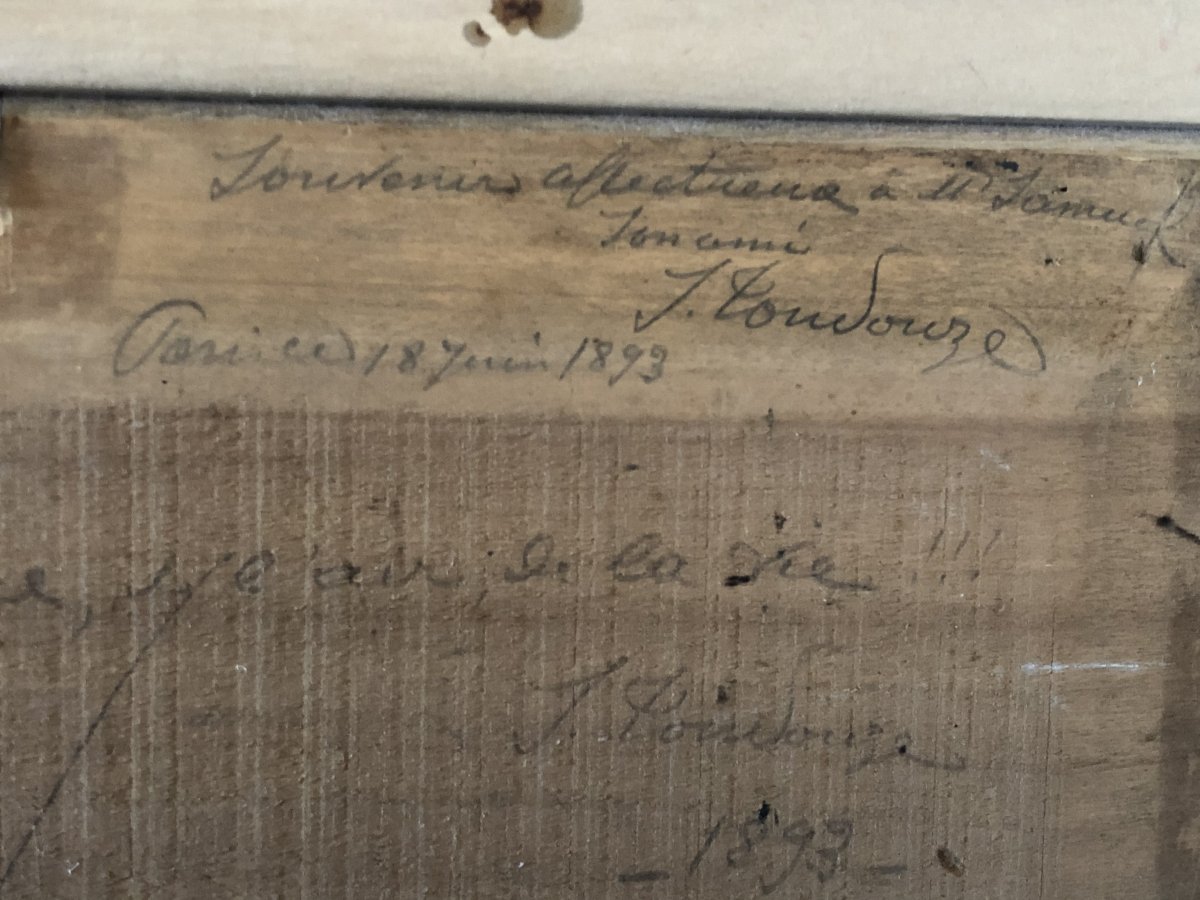 Souvenir affectueux à Mr Samuel
Son ami
S. Toudouze
Paris ce 18 Juin 1893
de la vie !!!
S. Toudouze
_ 1893 _